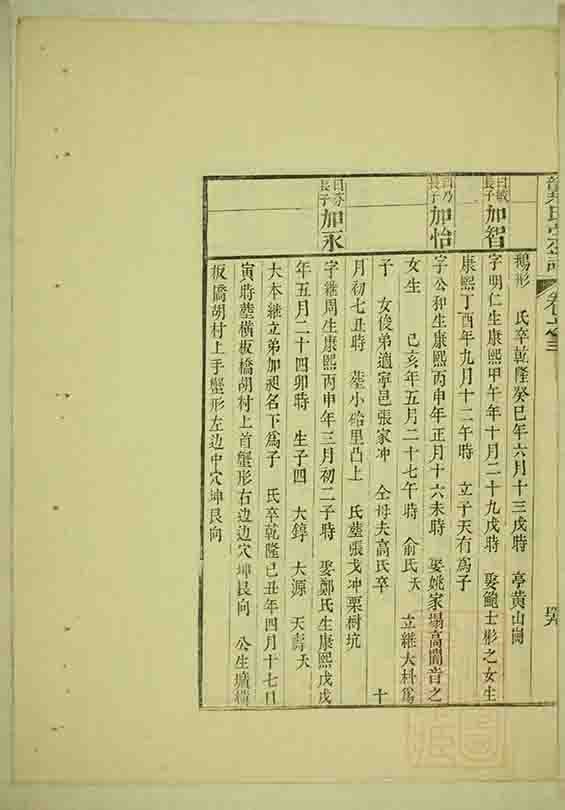 氏宗譜 卷之三
鵝形 氏卒乾隆癸巳年六月十三戌時 葬黃山崗
曰敏長子 加智
字明仁生康熙甲午年十月二十九戌時 娶鮑士彤之女生
康熙丁酉年九月十二午時 立子天有爲子
曰乃長子 加怡
字公和生康熙丙申年正月十六未時 娶姚家塌高聞音之
女生 己亥年五月二十七午時 俞氏夭 立繼大科爲
子 女俊弟適寧邑張家冲 仝母夫高氏卒 十
月初七丑時 塟小硲里凸上 氏塟張戈冲栗樹坑
曰芬長子 加永
字繼周生康熙丙申年三月初二子時 娶鄭氏生康熙戊戌
年五月二十四卯時 生子四 大錞 大源 天壽夭
大本継立弟加昶名下爲子 氏卒乾隆己丑年四月十七日
寅時塟橫板橋胡村上首蟹形右边边穴坤艮向 公生壙橫
板僑胡村上手蟹形左边中穴坤艮向